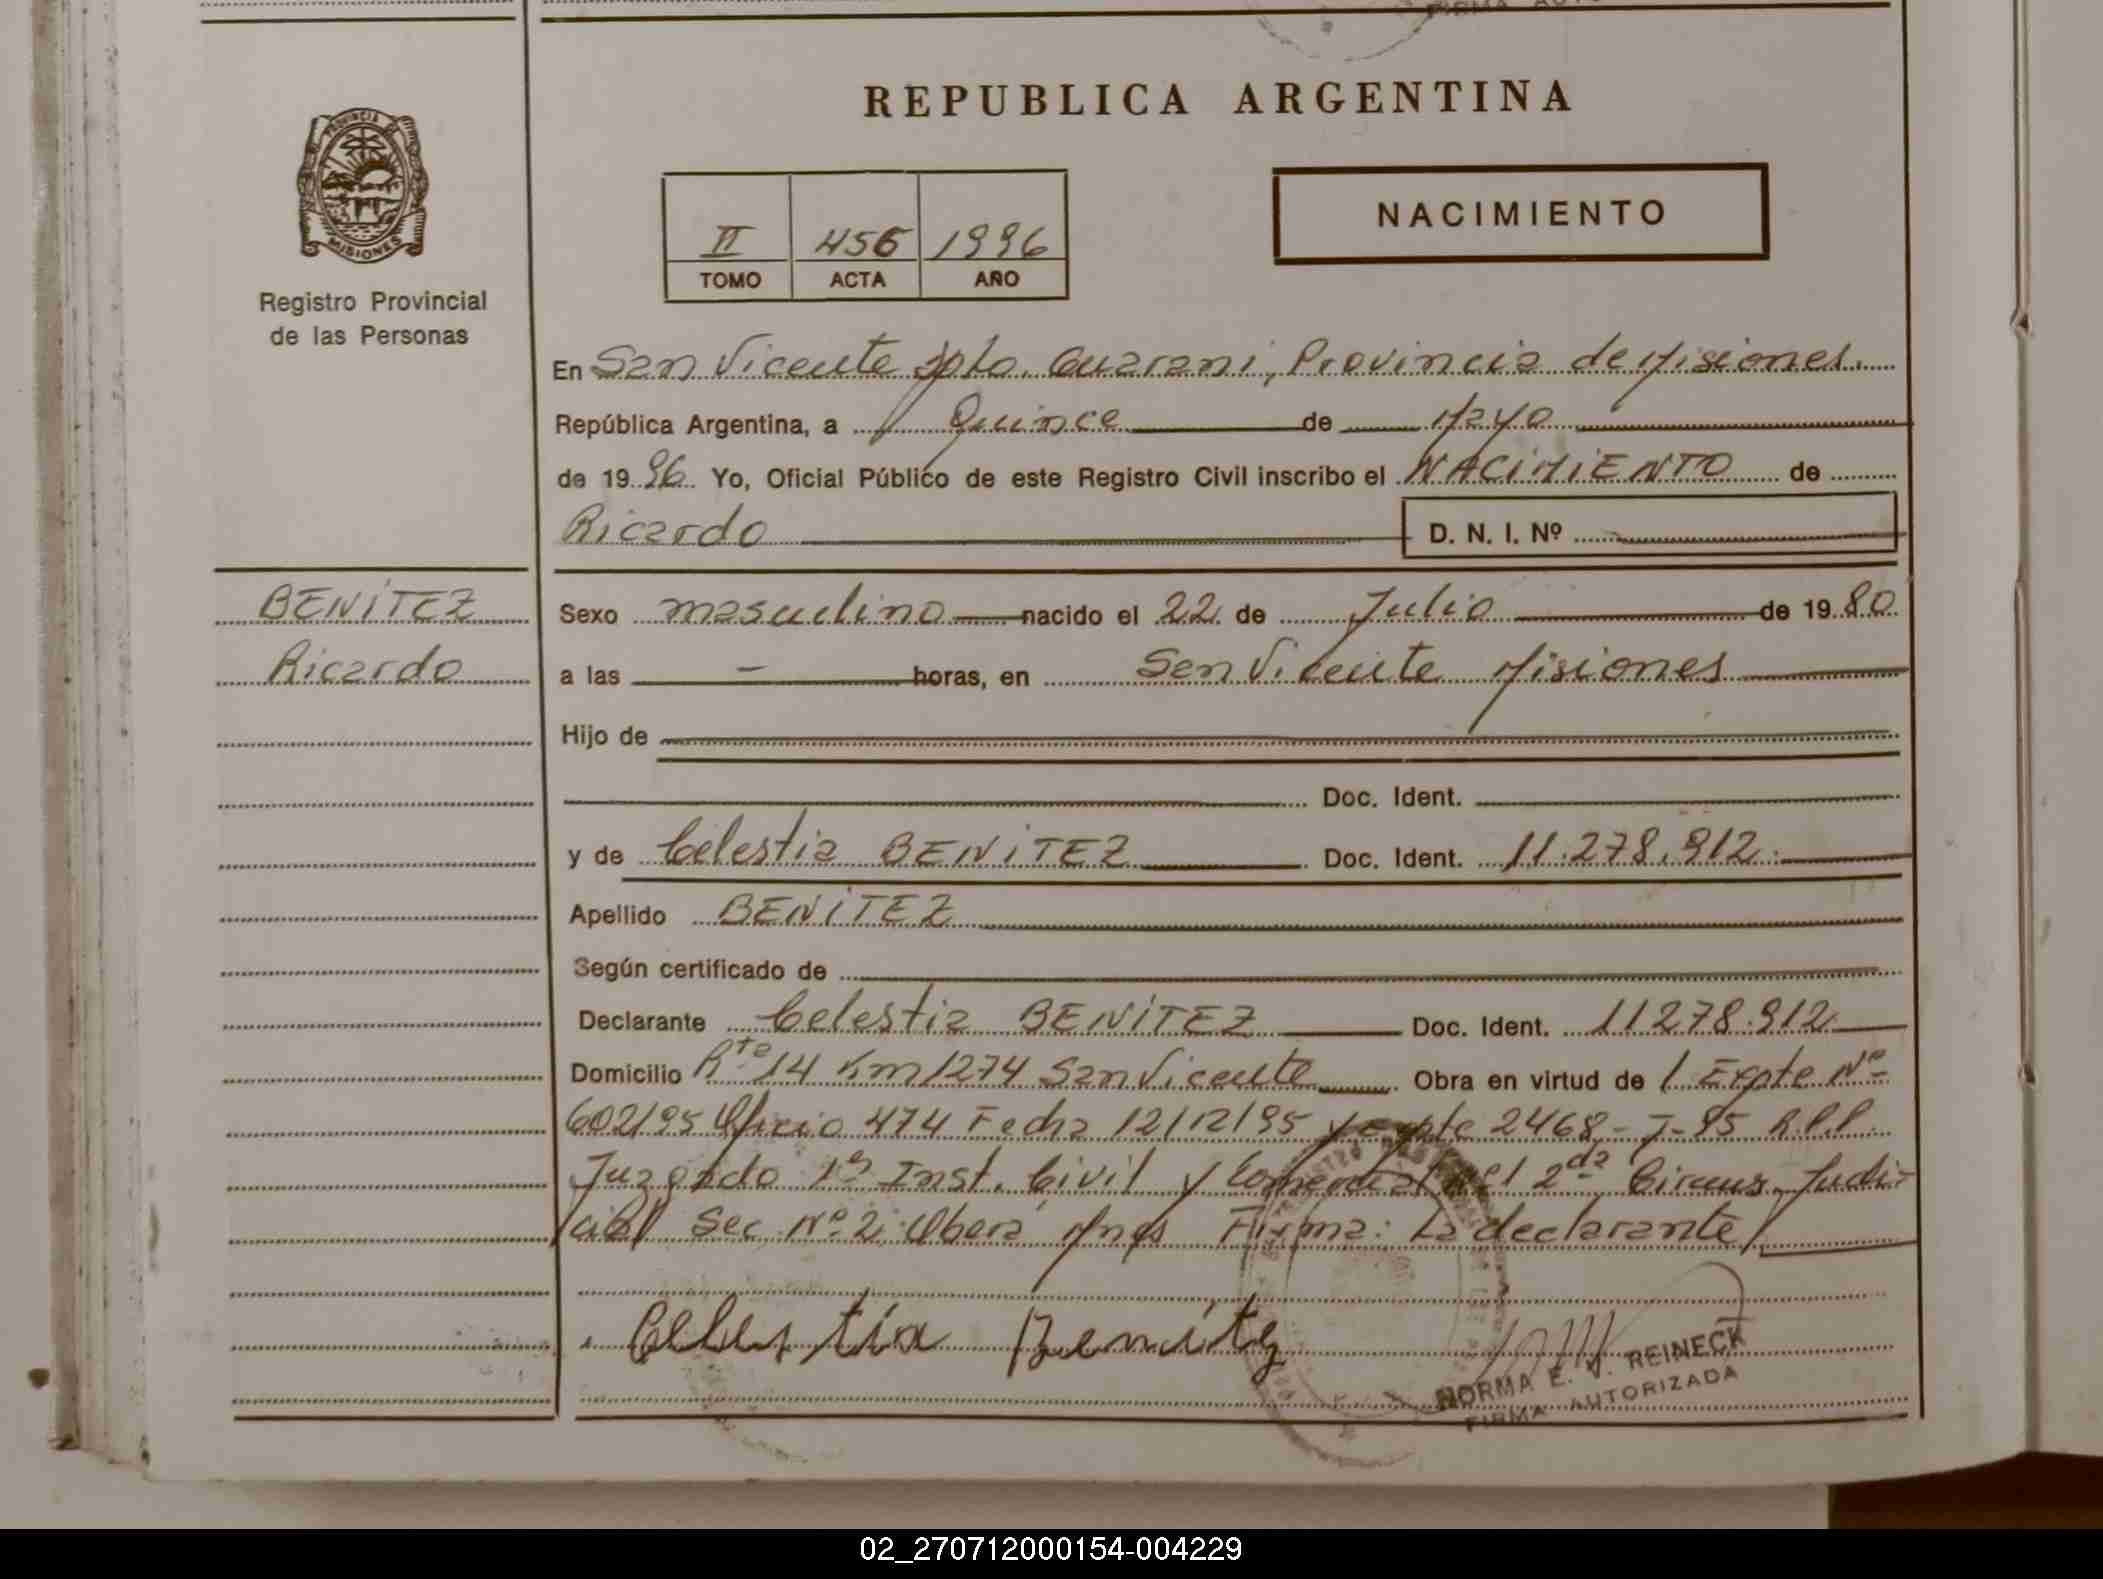 FIRMA AUTO
REPUBLICA ARGENTINA
PROVINCIA DE
MISIONES
Registro Provincial
de las Personas
II 456 1996
TOMO ACTA AÑO
NACIMIENTO
En San Vicente Dpto. Guaraní, Provincia de Misiones.
República Argentina, a Quince de Mayo
de 1996 Yo, Oficial Público de este Registro Civil inscribo el NACIMIENTO de
Ricardo D. N. I. Nº
BENÍTEZ
Ricardo
Sexo masculino nacido el 22 de Julio de 1980
a las - horas, en San Vicente Misiones
Hijo de
Doc. Ident.
y de Celestia BENÍTEZ Doc. Ident. 11.278.912.
Apellido BENÍTEZ
Según certificado de
Declarante Celestia BENÍTEZ Doc. Ident. 11278.912
Domicilio Rta 14 Km 1274 San Vicente Obra en virtud de / Expte Nº
602/95 Oficio 474 Fecha 12/12/95 y Expte 2468-J-95 R.P.P.
Juzgado 1º Inst. Civil y Comercial del 2da Circuns. Judi-
cial Sec. Nº 2 Oberá Mnes Firma: La declarante/
Celestia Benítez
NORMA E. V. REINECK
FIRMA AUTORIZADA
02_270712000154-004229